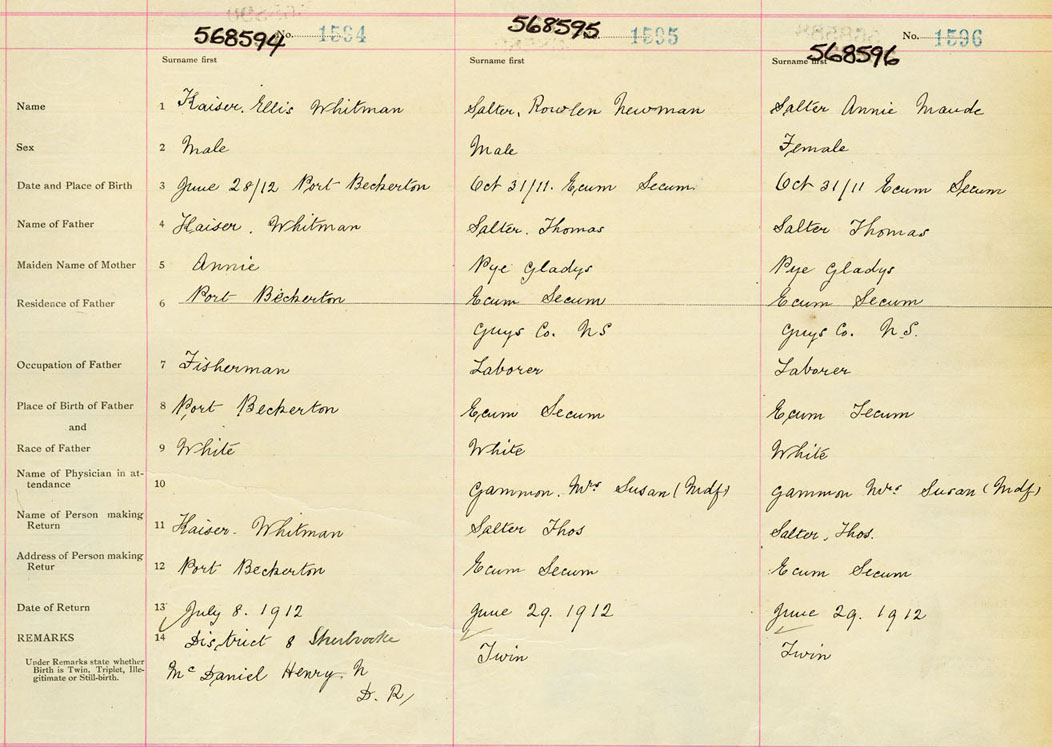 568594 No. 1594 568595 No. 1595 568596 No. 1596
Surname first Surname first Surname first
Name 1 Kaiser, Ellis Whitman Salter, Rowlen Newman Salter Annie Maude
Sex 2 Male Male Female
Date and Place of Birth 3 June 28/12 Port Beckerton Oct 31/11. Ecum Secum Oct 31/11 Ecum Secum
Name of Father 4 Kaiser, Whitman Salter, Thomas Salter Thomas
Maiden Name of Mother 5 Annie Pye Gladys Pye Gladys
Residence of Father 6 Port Beckerton Ecum Secum Ecum Secum
Guys Co. N S Guys Co. N.S.
Occupation of Father 7 Fisherman Laborer Laborer
Place of Birth of Father 8 Port Beckerton Ecum Secum Ecum Secum
and
Race of Father 9 White White White
Name of Physician in at-
tendance 10 Gammon, Mrs Susan (Mdf) Gammon Mrs Susan (Mdf)
Name of Person making
Return 11 Kaiser. Whitman Salter Thos Salter, Thos.
Address of Person making
Retur 12 Port Beckerton Ecum Secum Ecum Secum
Date of Return 13 July 8. 1912 June 29. 1912 June 29. 1912
REMARKS 14 District 8 Sherbrooke Twin Twin
Under Remarks state whether
Birth is Twin, Triplet, Ille-
gitimate or Still-birth.
Mc Daniel Henry. N
D. R,